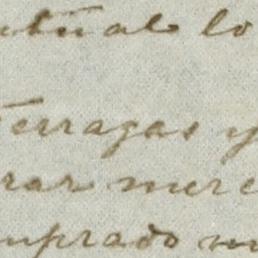 ntual lo
Terragas y
rar merc
mprado m